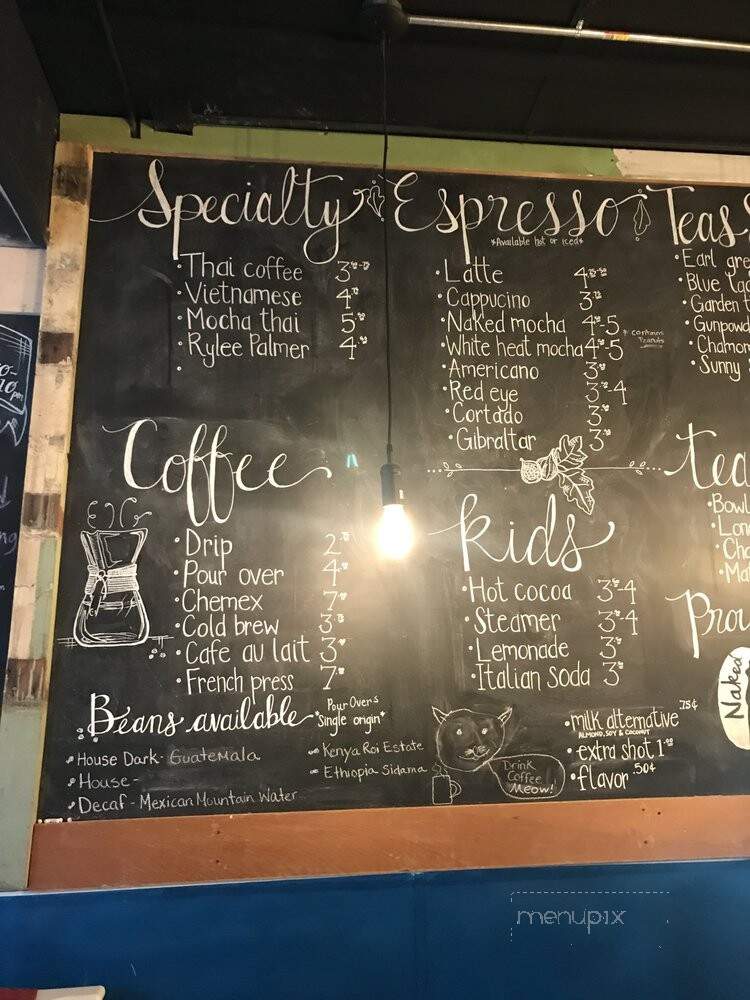 Specialty
Thai coffee 3
Vietnamese 4
Mocha thai 5
Rylee Palmer 4
Espresso
*Available hot or iced*
Latte 4
Cappucino 3
Naked mocha 4-5
White heat mocha 4-5
* contains Peanuts
Americano 3
Red eye 3-4
Cortado 3
Gibraltar 3
Teas
Earl gre
Blue
Garden
Gunpowd
Chamom
Sunny
Coffee
Drip 2
Pour over 4
Chemex 7
Cold brew 3
Cafe au lait 3
French press 7
kids
Hot cocoa 3-4
Steamer 3-4
Lemonade 3
Italian Soda 3
tea
Bowl
Naked
Beans available
Pour Overs
*Single origin*
House Dark - Guatemala
House -
Decaf - Mexican Mountain Water
Kenya Roi Estate
Ethiopia Sidama
Drink
Coffee
Meow!
milk alternative .75¢
ALMOND, SOY & COCONUT
extra shot 1.00
flavor .50¢
menupix